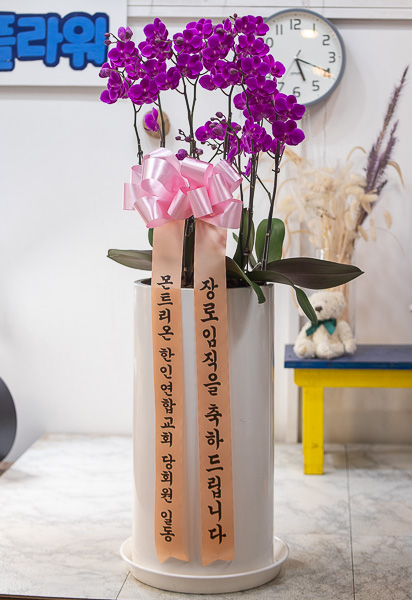 플라워
장로임직을 축하드립니다
몬트리온 한인연합교회 당회원 일동